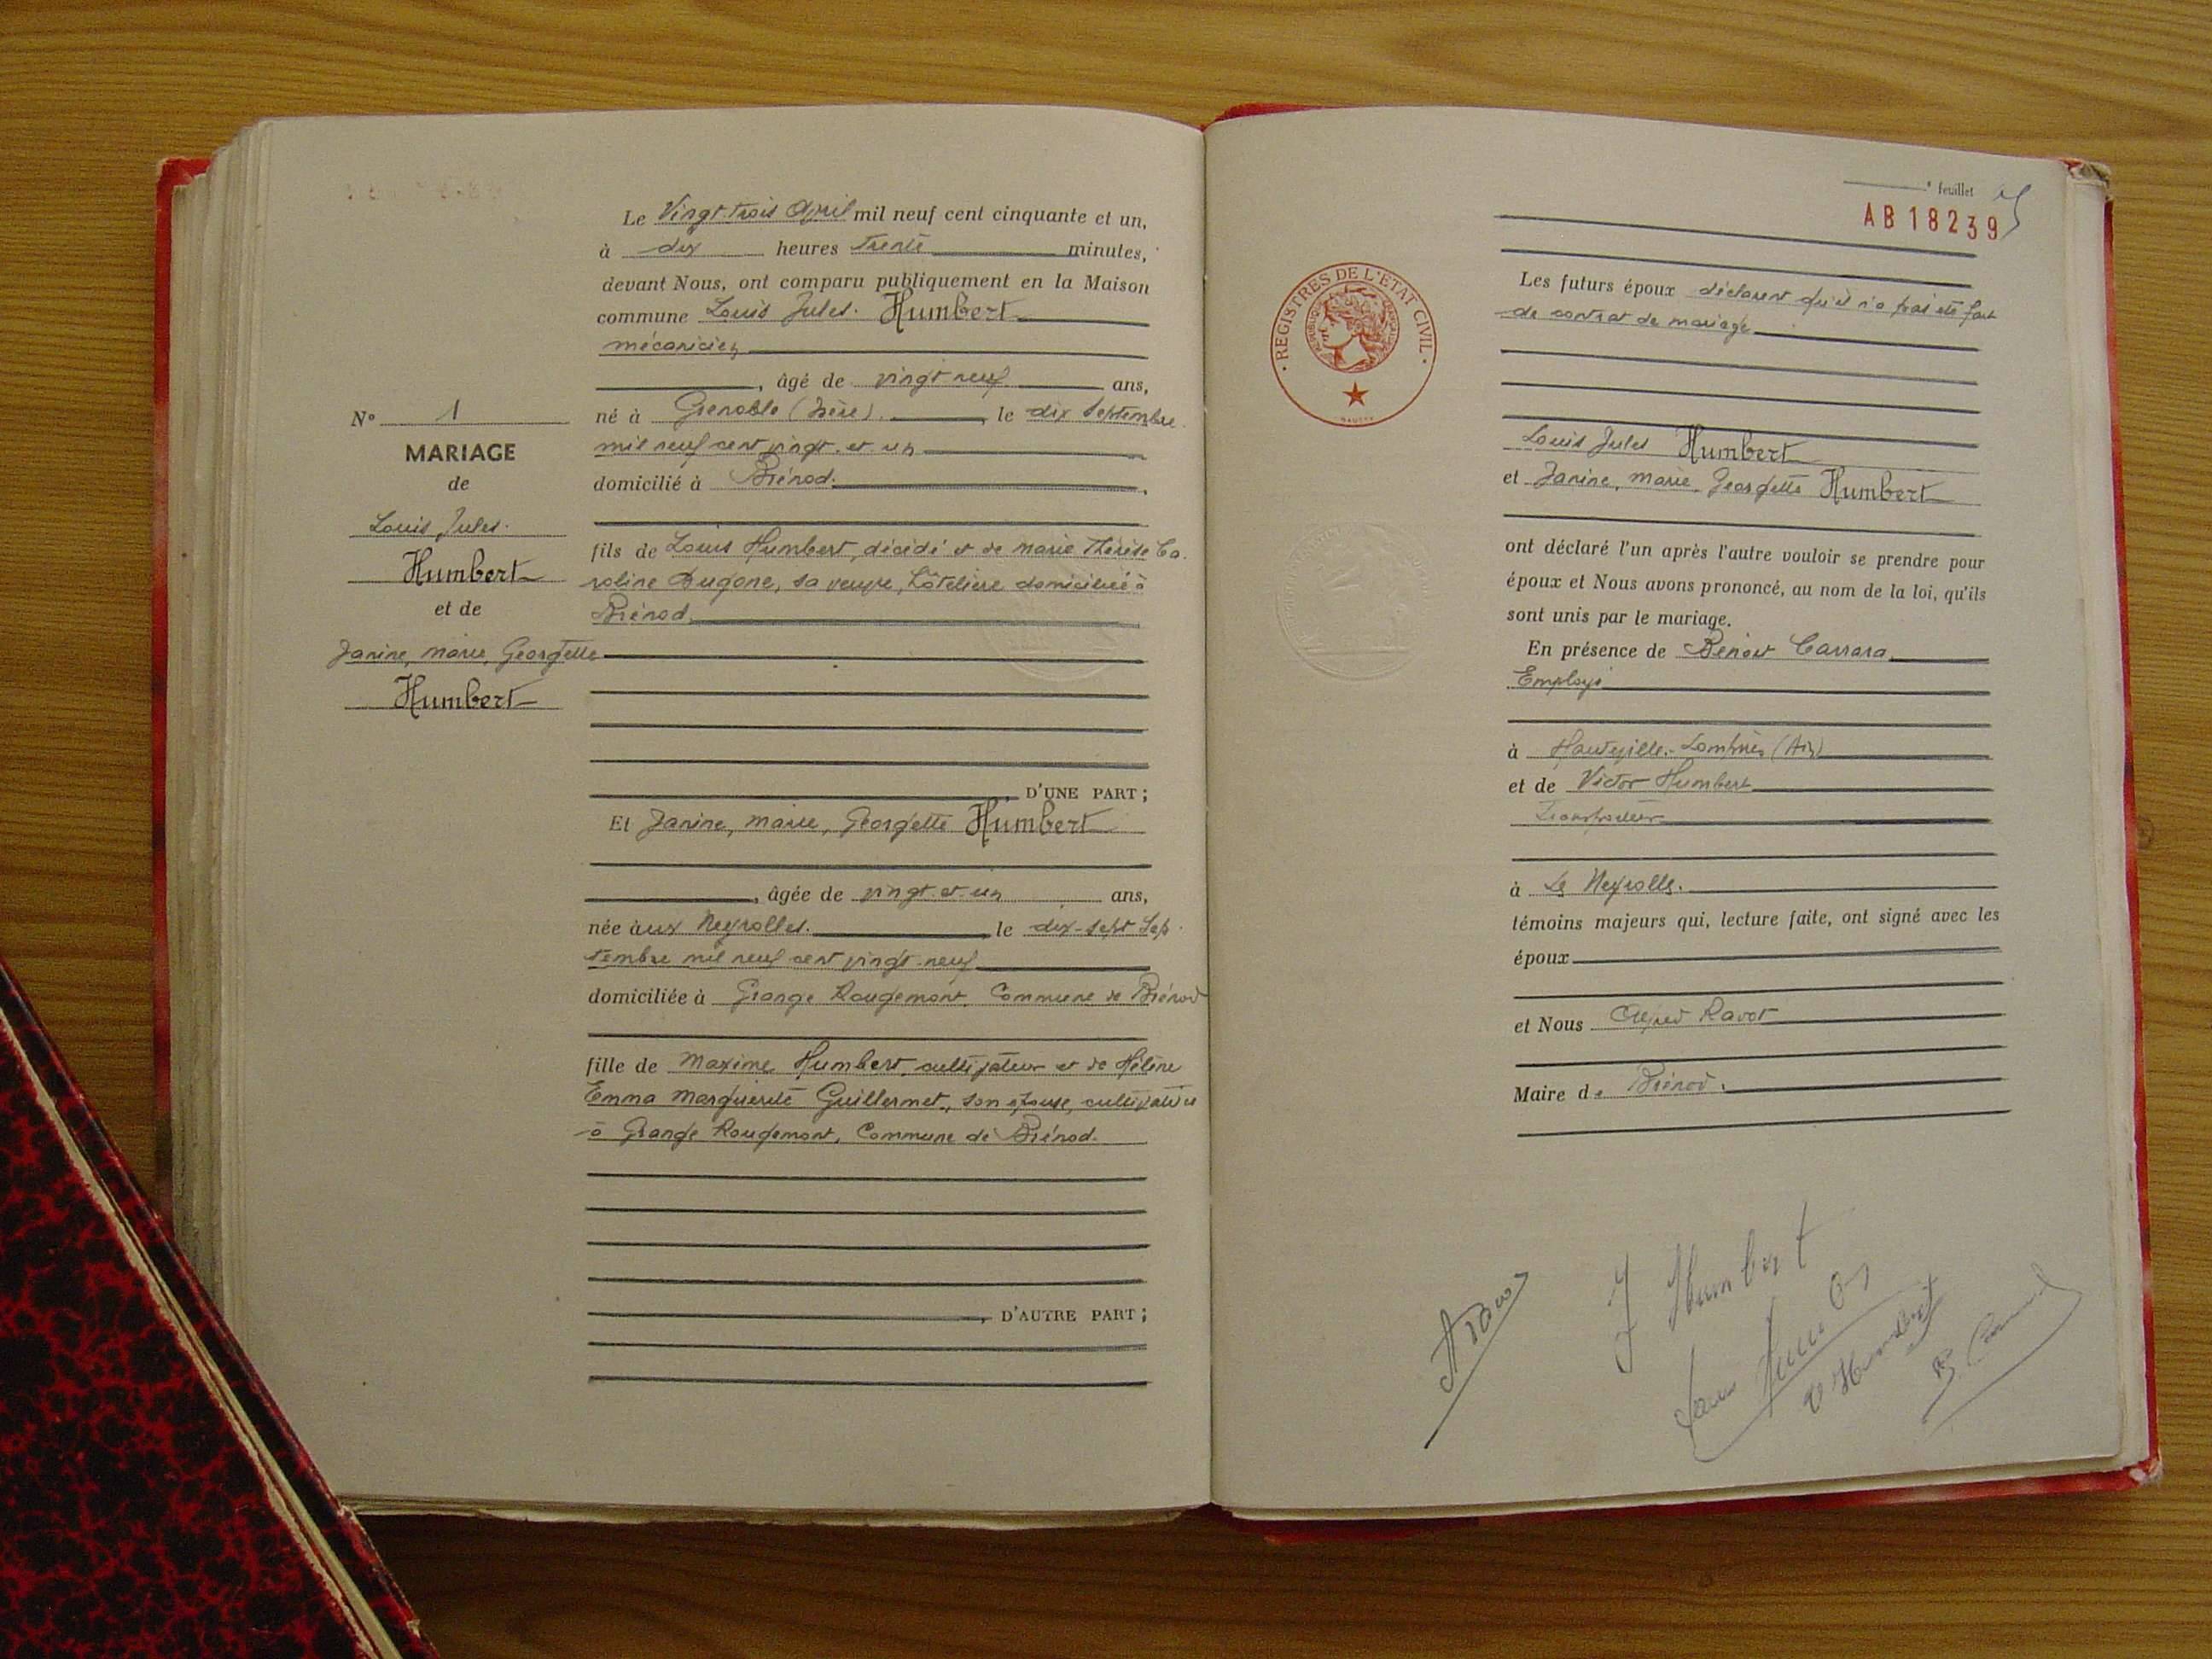 Le Vingt-trois Avril mil neuf cent cinquante et un,
à dix heures Trente minutes,
devant Nous, ont comparu publiquement en la Maison
commune Louis Jules. Humbert
mécanicien
, âgé de vingt neuf ans,
né à Grenoble (Isère). , le dix Septembre
mil neuf cent vingt-et-un
domicilié à Brénod. ,
fils de Louis Humbert, décédé et de Marie Thérèse Ca-
roline Dugone, sa veuve, hôtelière domiciliée à
Brénod.
D'UNE PART ;
Et Janine, Marie, Georgette Humbert
, âgée de vingt-et-un ans,
née aux Neyrolles. , le dix-sept Sep-
tembre mil neuf cent vingt-neuf
domiciliée à Grange Rougemont, Commune de Brénod
fille de Maxime Humbert, cultivateur et de Hélène
Emma Marguerite Guillermet, son épouse, cultivatrice
à Grange Rougemont, Commune de Brénod.
, D'AUTRE PART ;
N° 1
MARIAGE
de
Louis Jules.
Humbert
et de
Janine, Marie, Georgette
Humbert
e feuillet
AB 18239
REGISTRES DE L'ETAT CIVIL
Les futurs époux déclarent qu'il n'a pas été fait
de contrat de mariage
Louis Jules Humbert
et Janine, Marie, Georgette Humbert
ont déclaré l'un après l'autre vouloir se prendre pour
époux et Nous avons prononcé, au nom de la loi, qu'ils
sont unis par le mariage.
En présence de Benoit Carrara,
Employé
à Hauteville-Lompnès (Ain)
et de Victor Humbert
Transporteur
à Les Neyrolles.
témoins majeurs qui, lecture faite, ont signé avec les
époux
et Nous Alfred Ravot
Maire de Brénod.
J Humbert
V Humbert